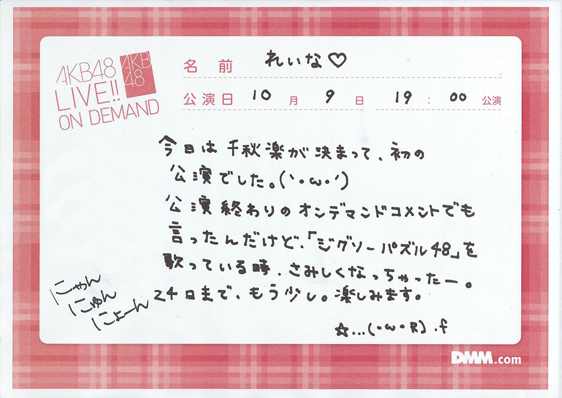 AKB48
LIVE!!
ON DEMAND
AKB
48
名前 れいな♡
公演日 10月 9日 19:00公演
今日は千秋楽が決まって、初の
公演でした。(`・ω・´)
公演終わりのオンデマンドコメントでも
言ったんだけど、「ジグソーパズル48」を
歌っている時、さみしくなっちゃったー。
24日まで、もう少し。楽しみます。
☆...(・ω・R].f
にゃん
にゅん
にょーん
DMM.com